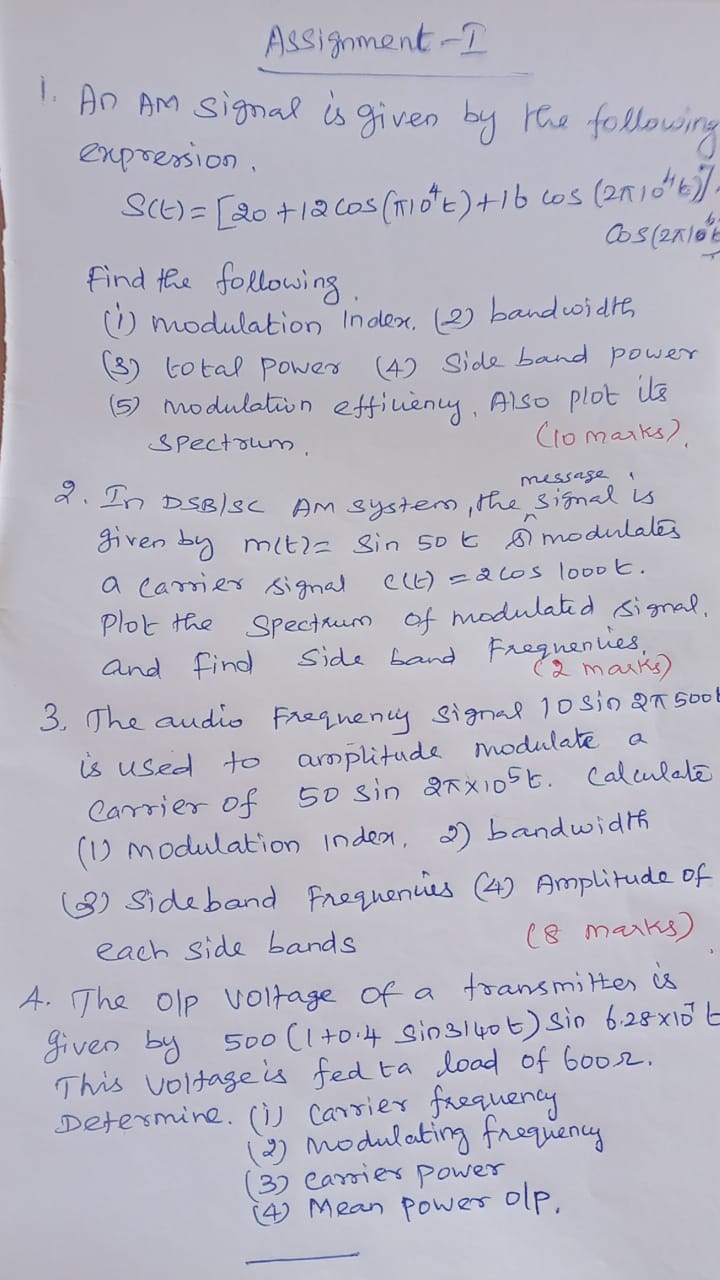 Assignment-I
1. An AM signal is given by the following
expression.
S(t) = [20 + 12 cos (π10⁴t) + 16 cos (2π10⁴t)].
Cos (2π10⁶t
Find the following.
(i) modulation Index. (2) bandwidth
(3) total power (4) Side band power
(5) modulation efficiency. Also plot its
spectrum. (10 marks).
message
2. In DSB/SC AM system, the signal is
given by m(t) = Sin 50 t modulates
a Carrier signal c(t) = 2 cos 1000 t.
Plot the Spectrum of modulated signal.
and find Side band Frequencies.
(2 marks)
3. The audio Frequency Signal 10 Sin 2π 500t
is used to amplitude modulate a
Carrier of 50 Sin 2π×10⁵t. Calculate
(1) modulation Index, 2) bandwidth
(3) Sideband Frequencies (4) Amplitude of
each side bands (8 marks)
4. The O/p voltage of a transmitter is
given by 500 (1+0.4 Sin3140t) Sin 6.28×10⁷ t
This voltage is fed to load of 600Ω.
Determine. (i) Carrier frequency
(2) Modulating frequency
(3) Carrier Power
(4) Mean Power o/p.